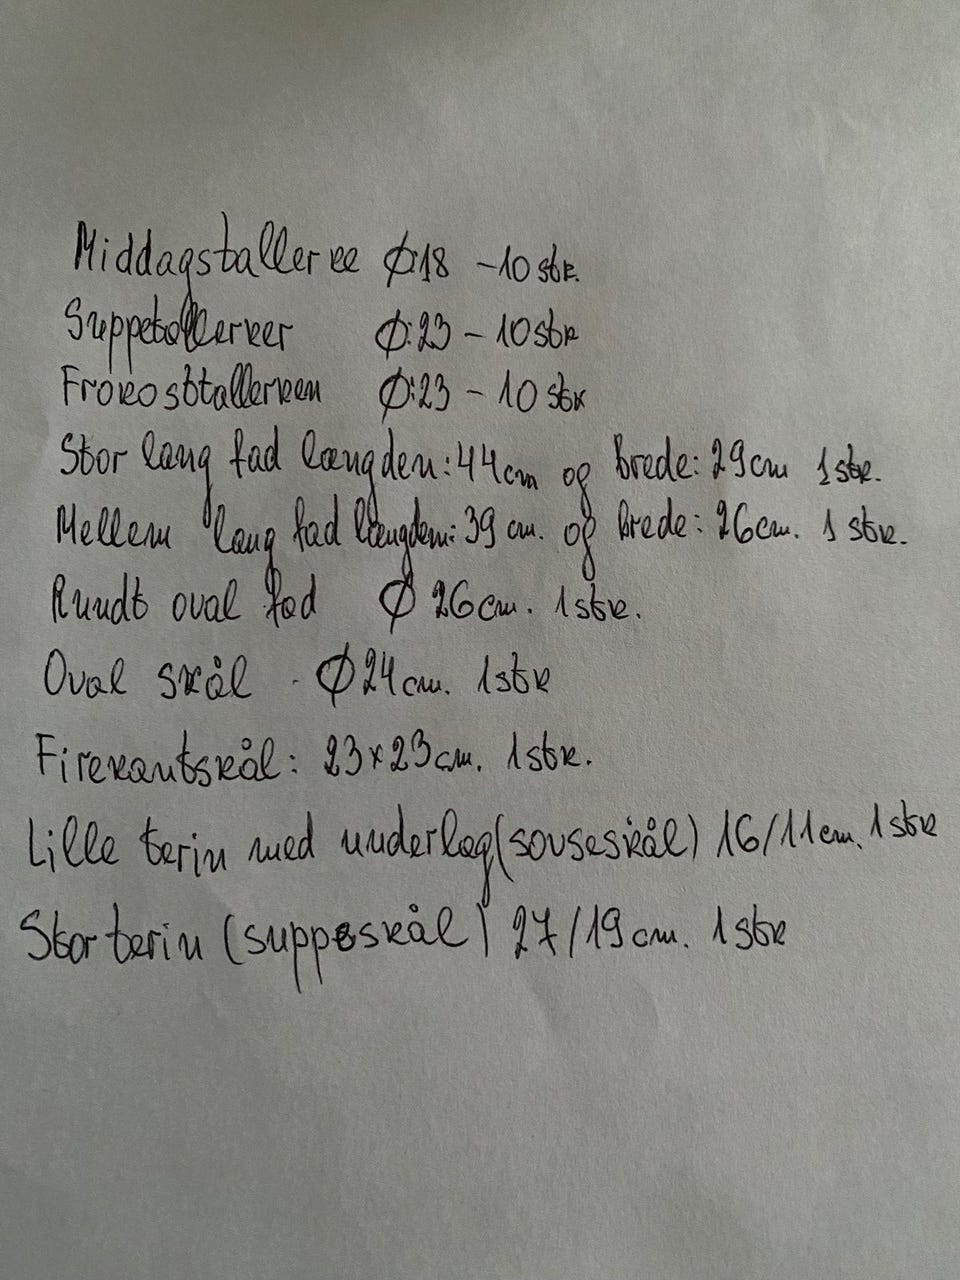 Middagstallerke Ø:18 - 10 stk.
Suppetallerker Ø:23 - 10 stk
Frokosttallerken Ø:23 - 10 stk
Stor lang fad længden: 44cm og brede: 29cm 1 stk.
Mellem lang fad længden: 39 cm. og brede: 26cm. 1 stk.
Rundt oval fad Ø 26cm. 1stk.
Oval skål - Ø24cm. 1stk
Firekantskål: 23x23cm. 1stk.
Lille terin med underlag (sovseskål) 16/11cm. 1stk
Stor terin (suppeskål) 27/19cm. 1stk